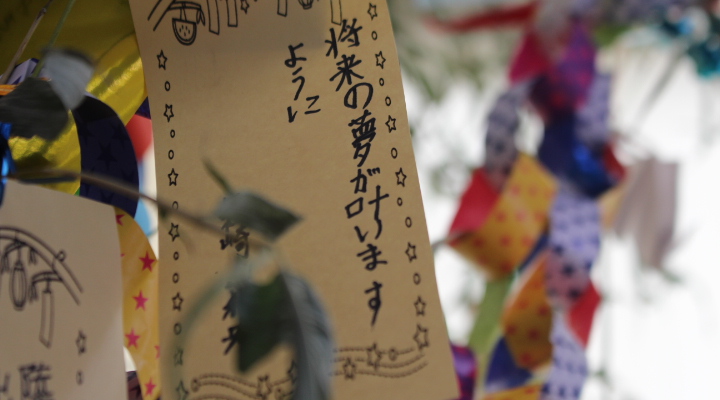 将来の夢が叶います
ように